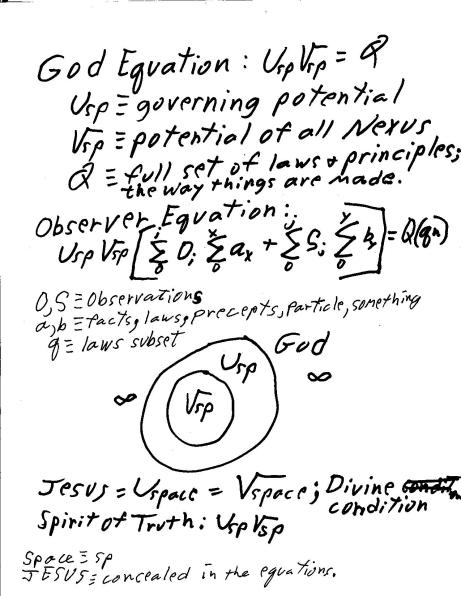 God Equation: UspVsp = Q
Usp ≡ governing potential
Vsp ≡ potential of all Nexus
Q ≡ full set of laws & principles;
the way things are made.
Observer Equation:
Usp Vsp [ i Σ 0 Oi x Σ 0 ax + j Σ 0 Sj y Σ 0 by ] = Q(qn)
O, S ≡ Observations
a, b ≡ facts, laws, precepts, particle, something
q ≡ laws subset
God
Usp
∞ Vsp ∞
Jesus = Uspace = Vspace; Divine
condition
Spirit of Truth: Usp Vsp
Space ≡ sp
JESUS ≡ concealed in the equations.